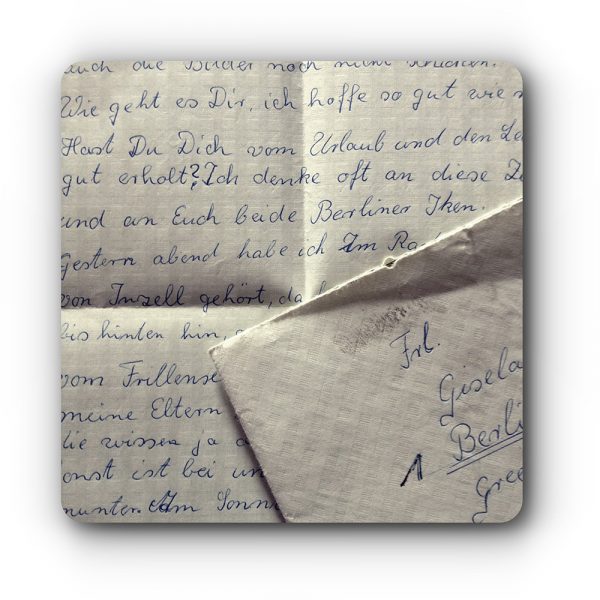 auch die Bilder noch
Wie geht es Dir, ich hoffe so gut wie
Hast Du Dich vom Urlaub und den
gut erholt? Ich denke oft an diese
und an Euch beide Berliner Iken.
Gestern abend habe ich Im
von Inzell gehört,
bis hinten hin,
vom Frillense
meine Eltern
die wissen ja
onst ist bei un
munter. Am Sonn
Frl.
Gisela
Berli
1
Gree